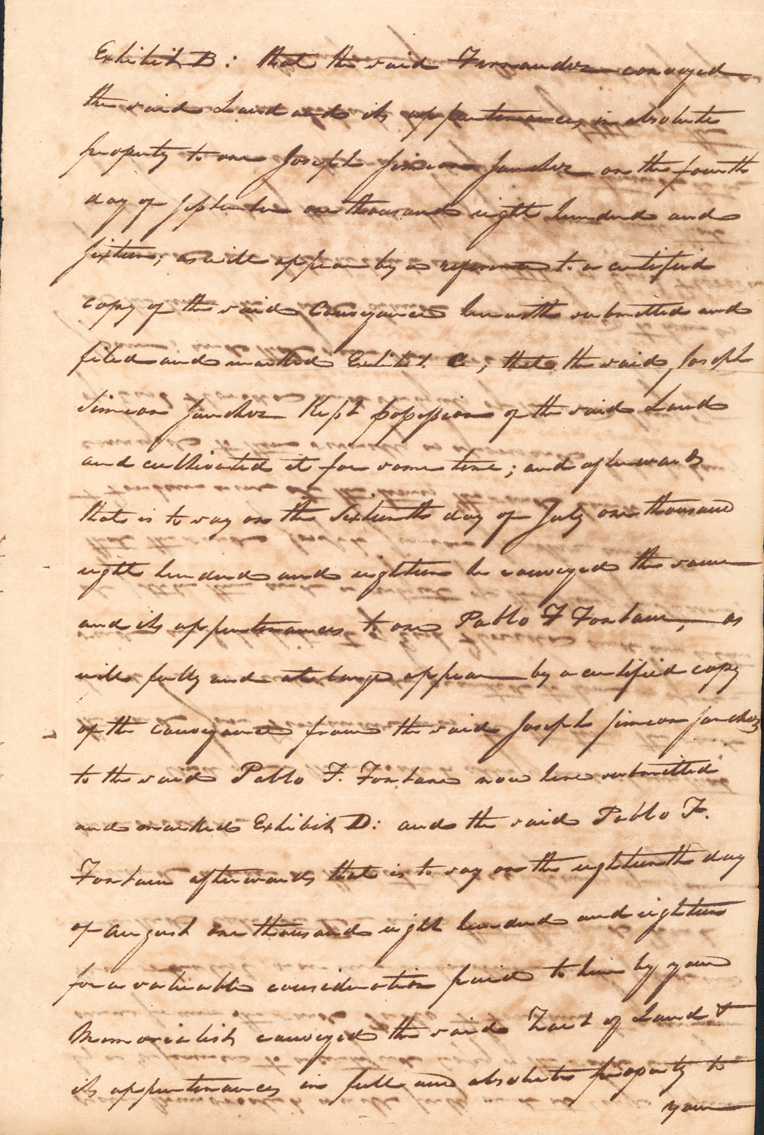 Exhibit B: that the said Fernandez conveyed
the said Land and its appurtenances in absolute
property to one Joseph Simeon Sanchez on the fourth
day of September one thousand eight hundred and
sixteen; as will appear by a reference to a certified
copy of the said Conveyance herewith submitted and
filed and marked Exhibit C; that the said Joseph
Simeon Sanchez Kept possession of the said Land
and cultivated it for some time; and afterwards
that is to say on the Sixteenth day of July one thousand
eight hundred and eighteen he conveyed the same
and its appurtenances to one Pablo F Fontane, as
will fully and at large appear by a certified copy
of the Conveyance from the said Joseph Simeon Sanchez
to the said Pablo F. Fontane now here submitted
and marked Exhibit D: and the said Pablo F.
Fontane afterwards that is to say on the eighteenth day
of August one thousand eight hundred and eighteen
for a valuable consideration paid to him by your
Memorialist conveyed the said Tract of Land &
its appurtenances in full and absolute property to
your